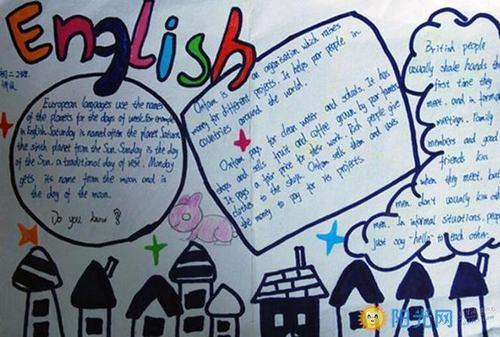 English
初二2班
European languages use the names
of the planets for the days of week. For example
in English, Saturday is named after the planet Saturn,
the sixth planet from the Sun. Sunday is the day
of the Sun. a traditional day of rest. Monday
gets its name from the moon and is
the day of the moon.
Do you know?
Oxfam is an organisation which raises
money for different projects. It helps poor people in
countries around the world.
Oxfam pays for clean water and schools. It has
shops and sells fruit and coffee grown by poor farmers
It pays a fair price for the work. Rich people give
clothes to the shops. Oxfam sells them and uses
the money to pay for its projects.
British people
usually shake hands the
first time they
meet. and in formal
meetings. Family
members and good
friends kiss
when they meet, but
men don't usually kiss
men. In informal situations, people
just say "hello" to each other.
阳光网